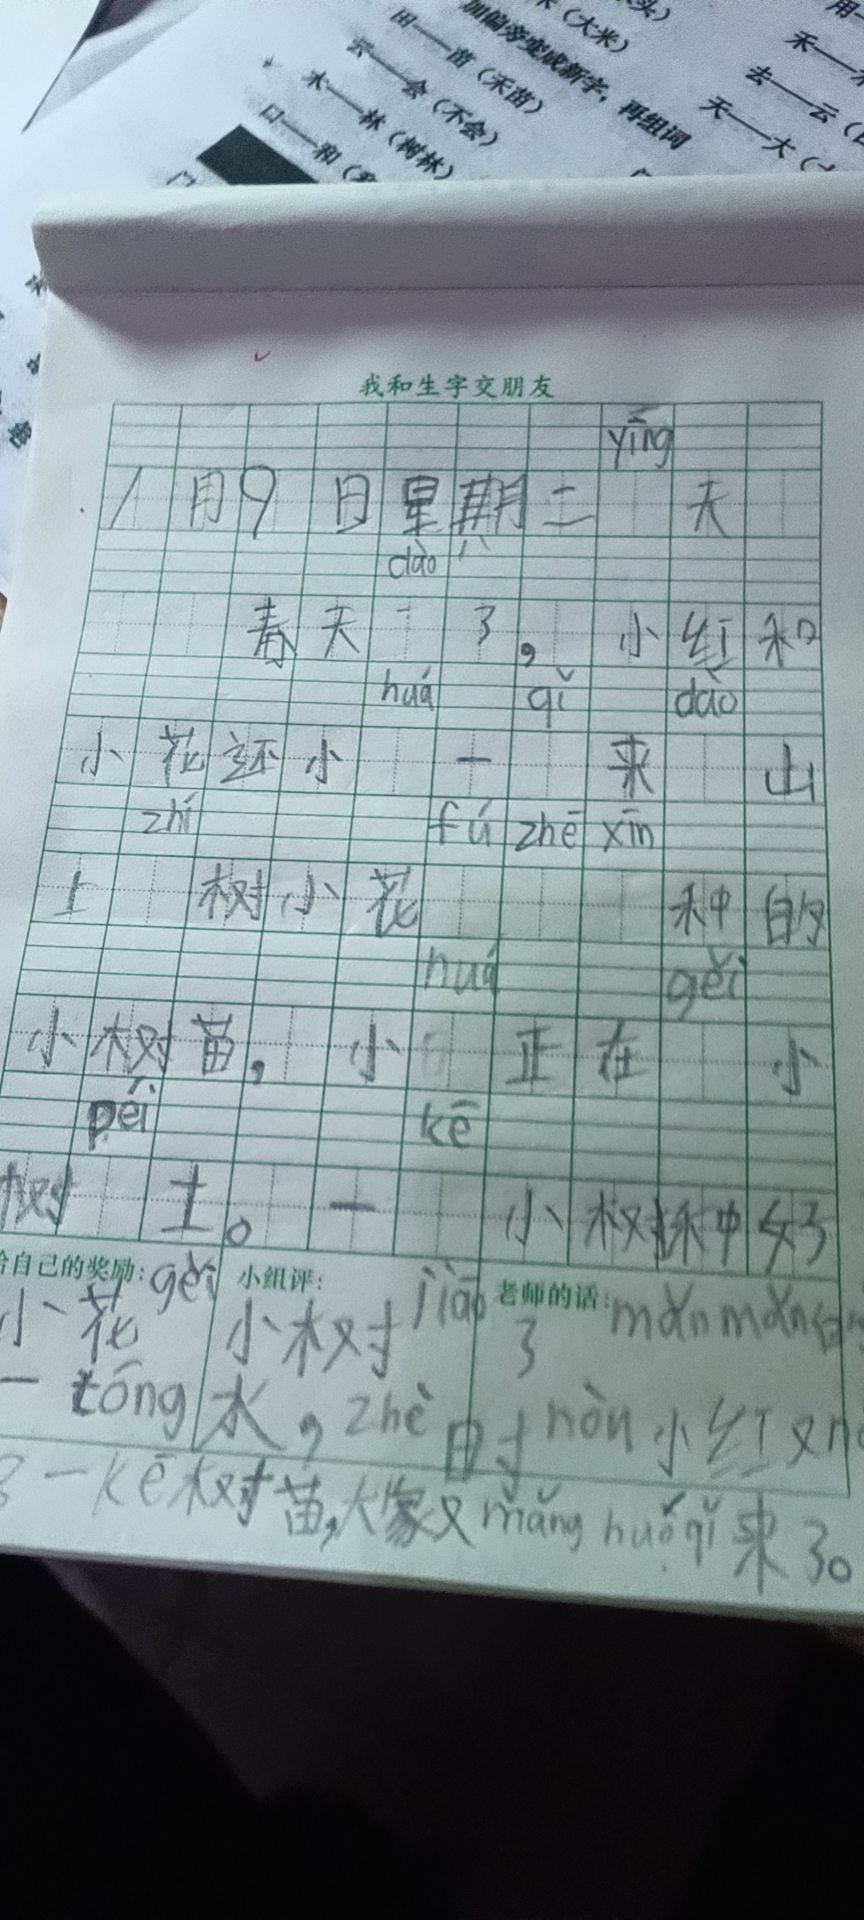 头）
米（大米）
加偏旁变成新字，再组词
田——苗（禾苗）
云——会（不会）
木——林（树林）
口——和（
用
禾——
去——云（
天——大（
我和生字交朋友
yīng
1月9日星期二 天
dào
春天 了，小红和
huá qǐ dào
小花还小 一 来 山
zhí fú zhē xīn
上 树小花 种的
huá gěi
小树苗，小 正在 小
péi kē
树 土。一 小树种好
给自己的奖励： 小组评： 老师的话：
gěi jiāo mǎn mǎn
小花 小树 了
一tóng水，zhè时hòu小红又
了一kē树苗，大家又máng huó qǐ来了。